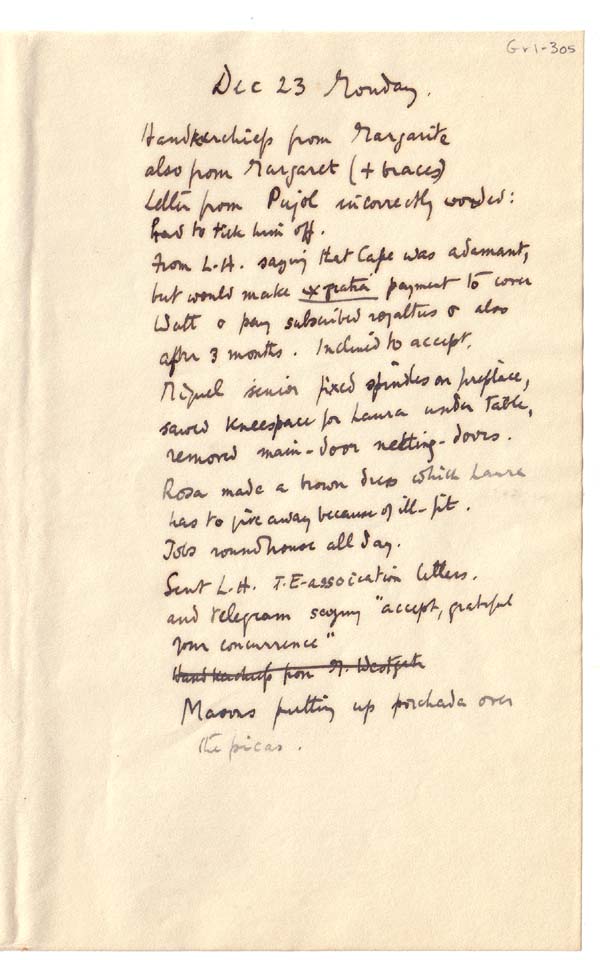 Gr1-305
Dec 23 Monday.
Handkerchiefs from Margarite
also from Margaret (+ braces)
Letter from Pujol incorrectly worded:
had to tick him off.
From L.H. saying that Cape was adamant,
but would make ex gratia payment to cover
Watt & pay subscribed royalties & also
after 3 months. Inclined to accept.
Miguel senior fixed spindles on fireplace,
sawed kneespace for Laura under table,
removed main-door netting-doors.
Rosa made a brown dress which Laura
has to give away because of ill-fit.
Jobs round house all day.
Sent L.H. T.E-association letters.
and telegram saying "accept, grateful
your concurrence"
Handkerchiefs from
Masons putting up porchada over
the picas.